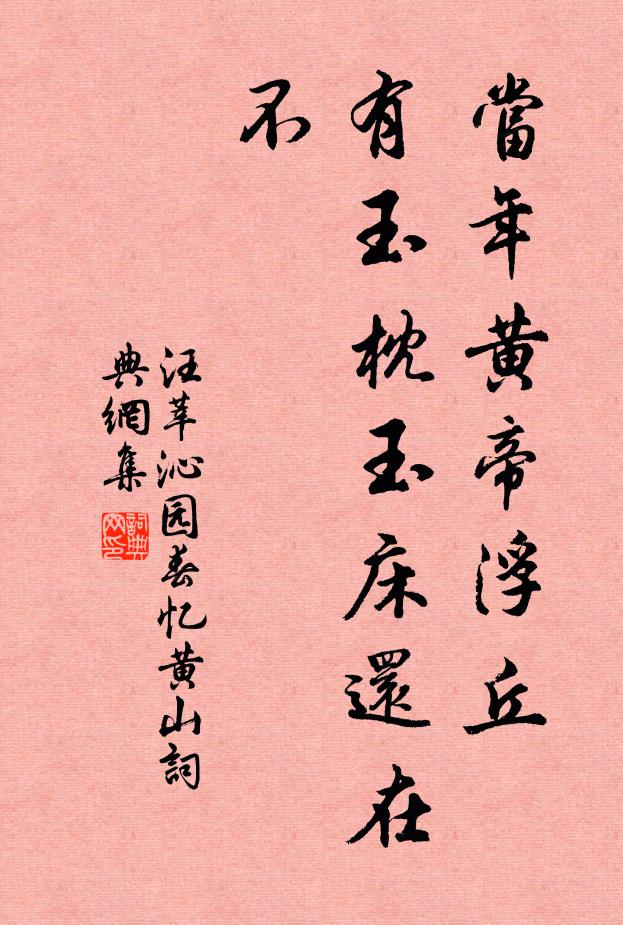 當年黃帝浮丘
有玉枕玉床還在
不
汪莘沁园春忆黄山詞
典網集
詞典网印